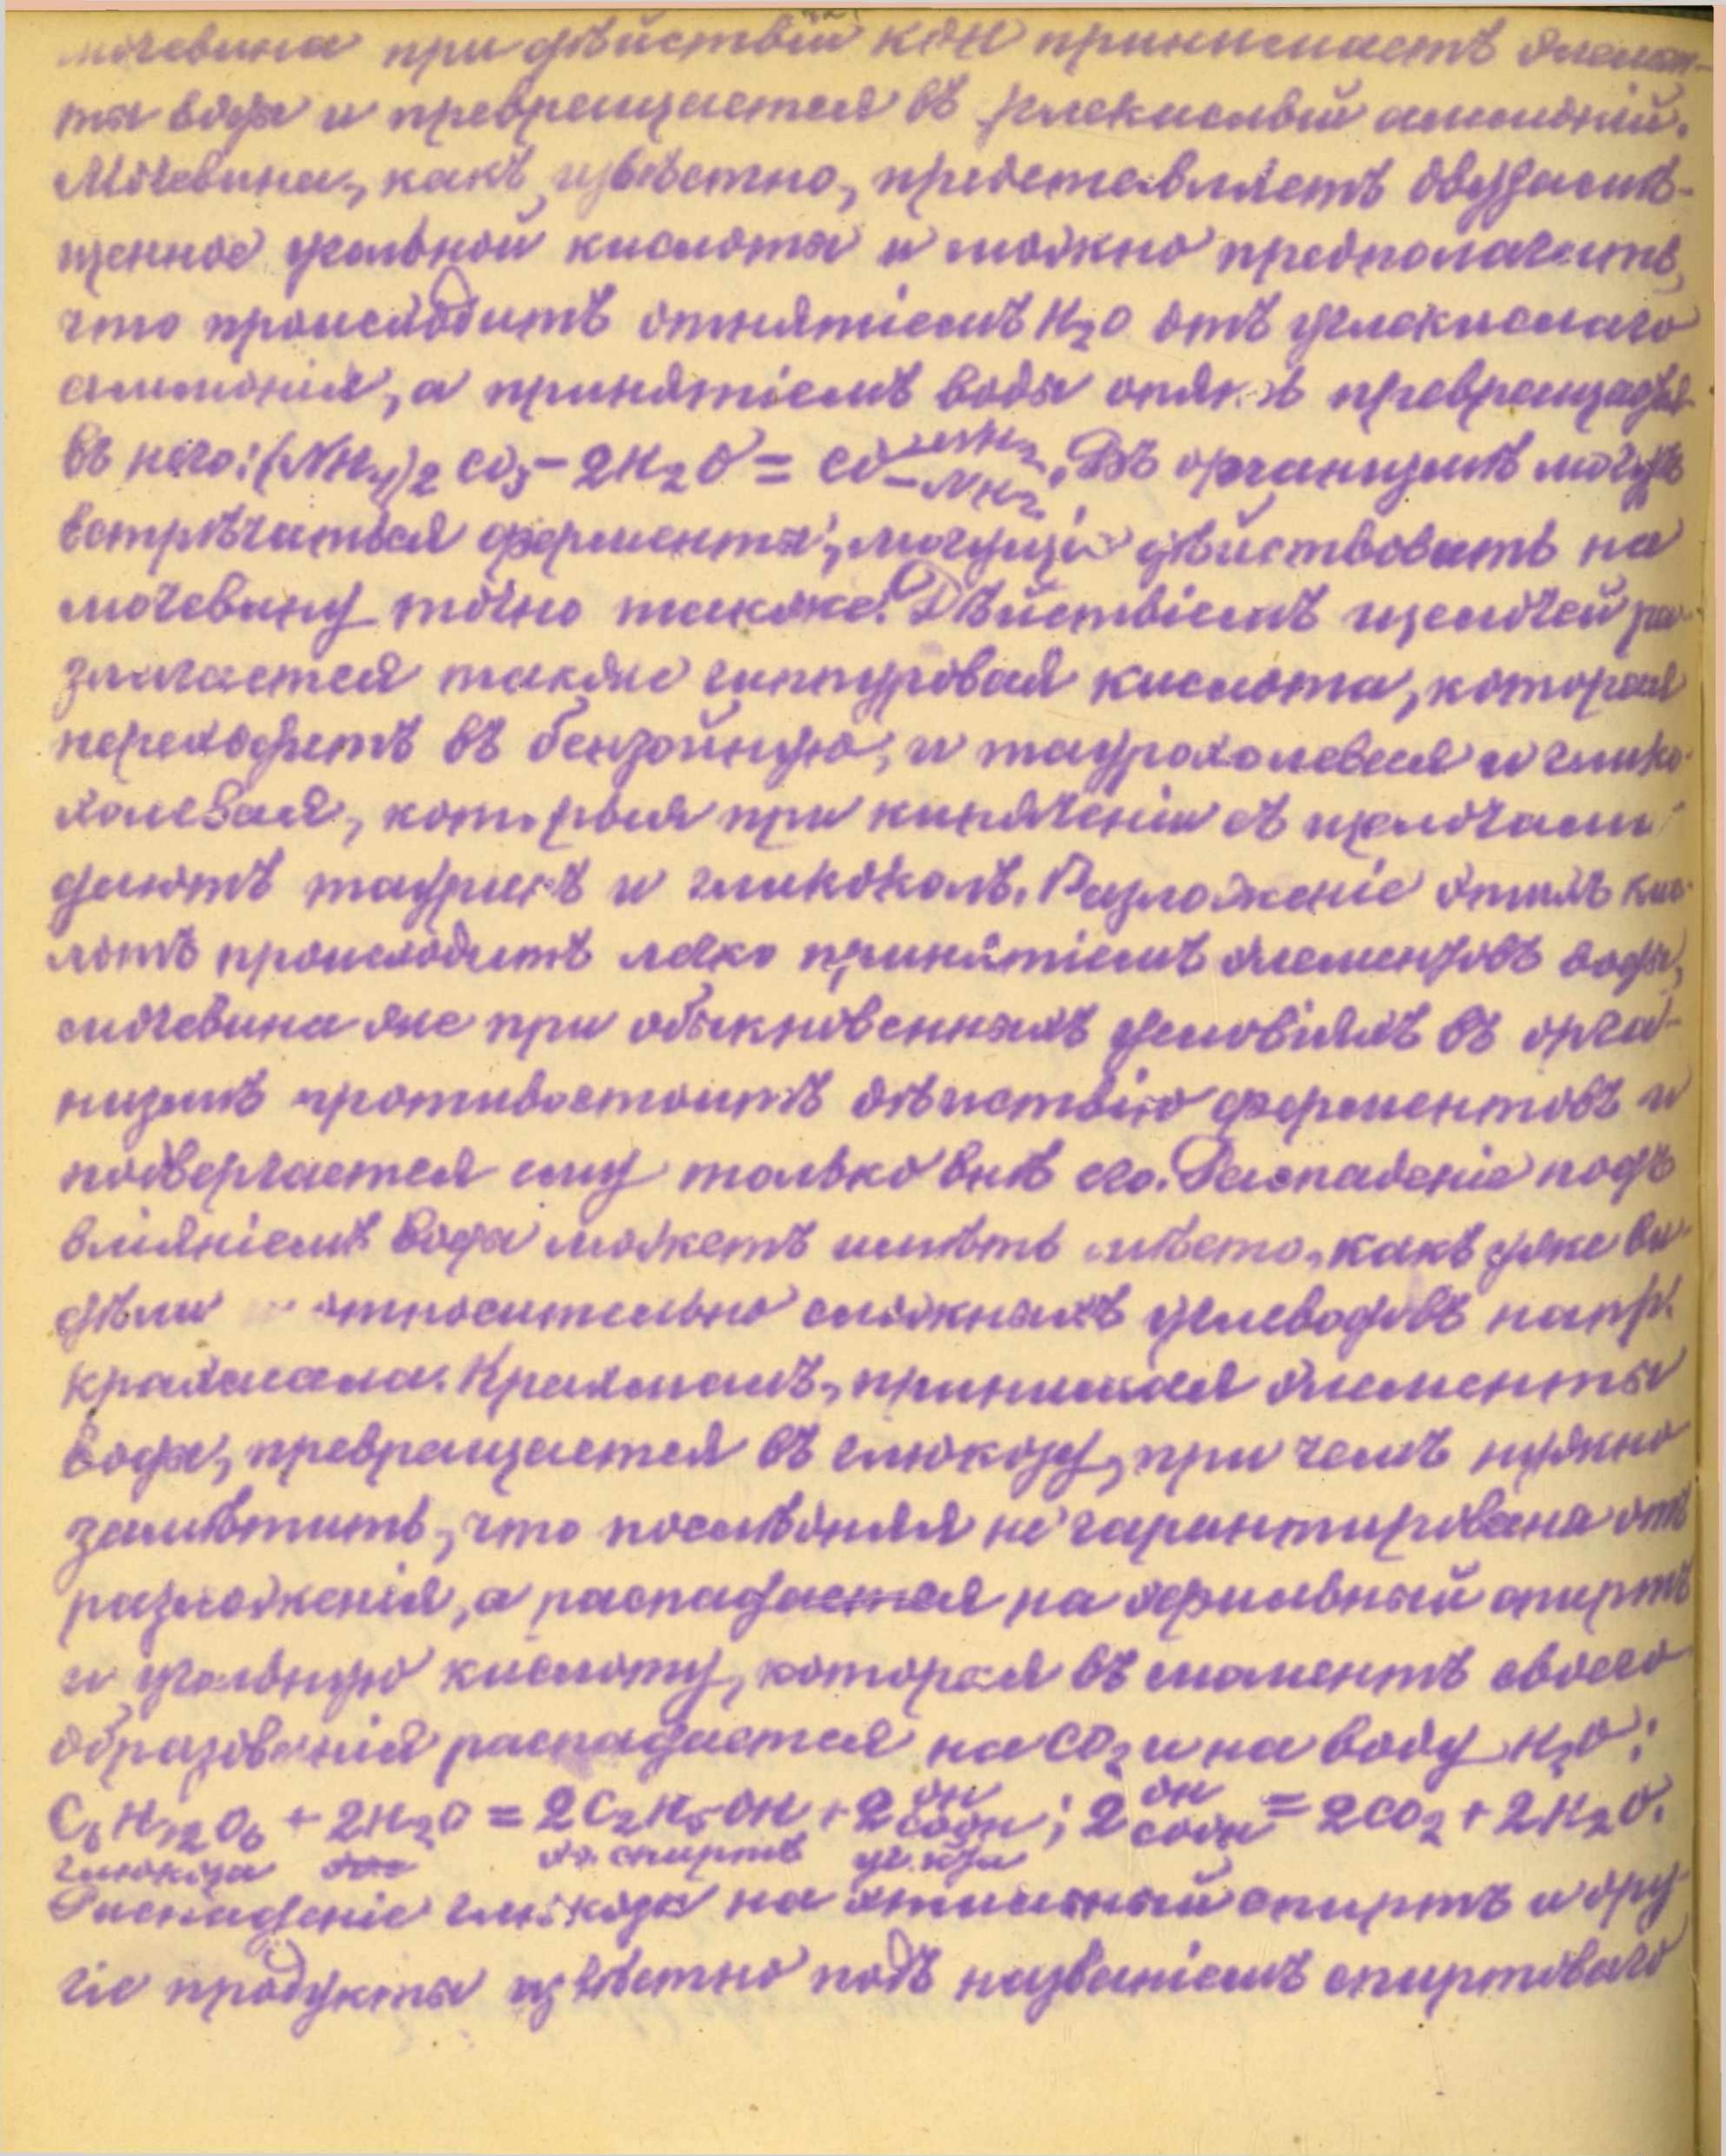 мочевина при дѣйствіи КОН принимаетъ элемен-
ты воды и превращается въ углекислый аммоній.
Мочевина, какъ извѣстно, представляетъ двузамѣ-
щенное угольной кислоты и можно предполагать,
что происходитъ отнятіемъ H₂O отъ углекислаго
аммонія, а принятіемъ воды опять превращаться
въ него: (NH₄)₂CO₃ - 2H₂O = CO-NH₂-NH₂. Въ организмѣ могутъ
встрѣчаться ферменты, могущіе дѣйствовать на
мочевину точно также. Дѣйствіемъ щелочей ра-
злагается также гиппуровая кислота, которая
переходитъ въ бензойную, и таурохолевая и глико-
холевая, которыя при кипяченіи съ щелочами
даютъ тауринъ и гликоколъ. Разложеніе этихъ кис-
лотъ происходитъ легко принятіемъ элементовъ воды,
мочевина же при обыкновенныхъ условіяхъ въ орга-
низмѣ противостоитъ дѣйствію ферментовъ и
подвергается ему только внѣ его. Распаденіе подъ
вліяніемъ воды можетъ имѣть мѣсто, какъ уже ви-
дѣли относительно сложныхъ углеводовъ напр.
крахмала. Крахмалъ, принимая элементы
воды, превращается въ глюкозу, при чемъ нужно
замѣтить, что послѣдняя не гарантирована отъ
разложенія, а распадается на этильный спиртъ
и угольную кислоту, которая въ моментъ своего
образованія распадается на CO₂ и на воду H₂O:
C₆H₁₂O₆ + 2H₂O = 2C₂H₅OH + 2 OH COOH; 2 OH COOH = 2CO₂ + 2H₂O.
глюкоза эт. спиртъ уг. к-та
Распаденіе глюкозы на этильный спиртъ и дру-
гіе продукты извѣстно подъ названіемъ спиртоваго